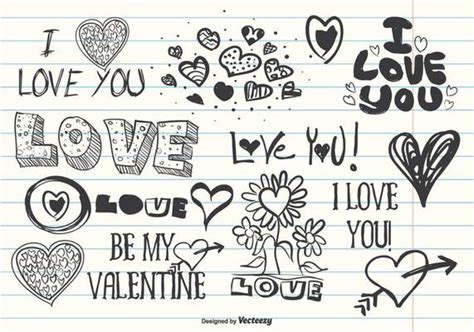 I
LOVE YOU
I
LOVE
YOU
LOVE
Love You!
LOVE
I LOVE
YOU!
BE MY
VALENTINE
LOVE
Designed by Vecteezy